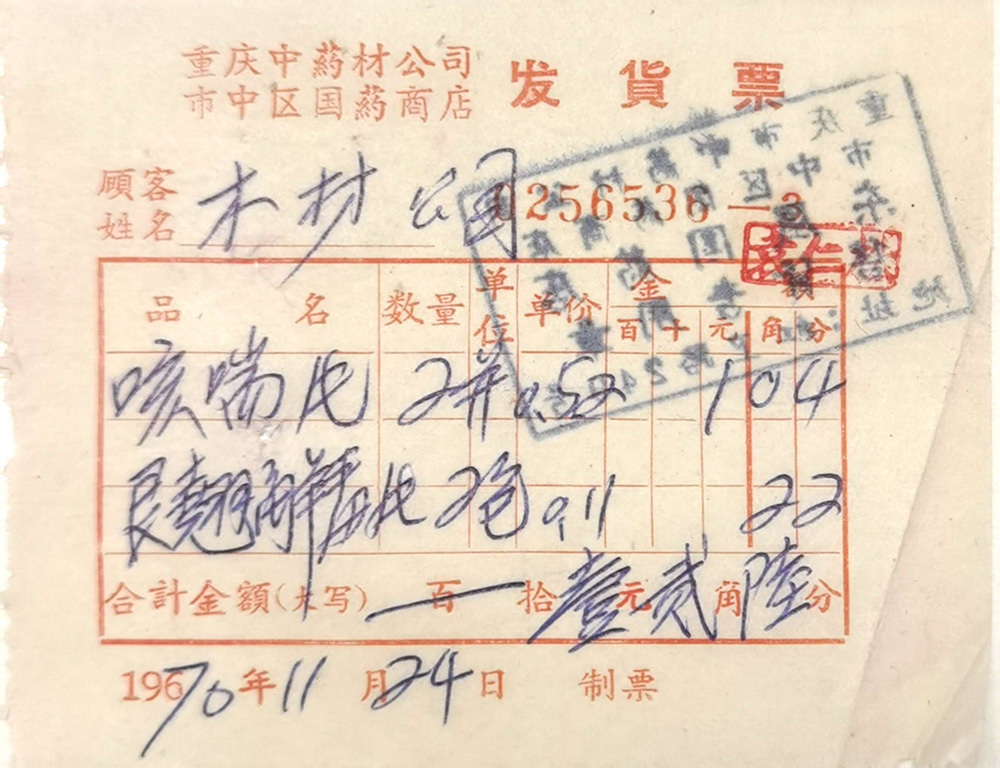 重庆中药材公司
市中区国药商店 发货票
顾客姓名 木材公司 0256536 — 3
品名 数量 单位 单价 金 百十元角分
咳喘 2 0.52 1 0 4
翘解毒 2包 0.11 2 2
合計金額(大写) 百 拾壹元贰角陸分
1970年11月24日 制票
重庆市
地址: